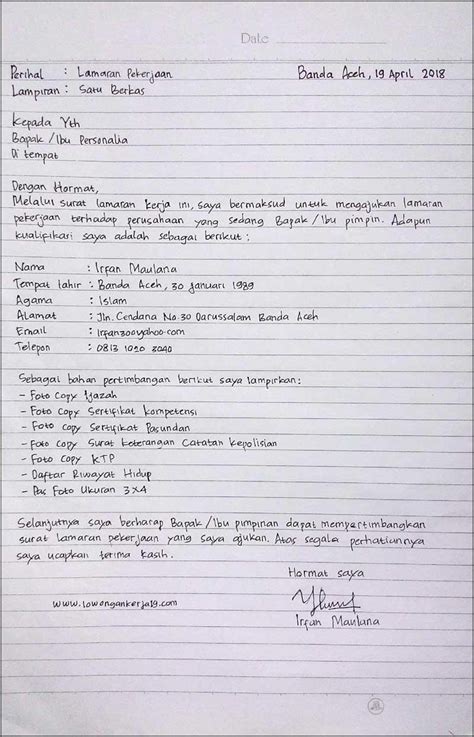 Date
Perihal : Lamaran Pekerjaan Banda Aceh, 19 April 2018
Lampiran : Satu Berkas
Kepada Yth
Bapak /Ibu Personalia
Di tempat
Dengan Hormat,
Melalui surat lamaran kerja ini, saya bermaksud untuk mengajukan lamaran
pekerjaan terhadap perusahaan yang sedang Bapak /Ibu pimpin. Adapun
kualifikasi saya adalah sebagai berikut :
Nama : Irfan Maulana
Tempat lahir : Banda Aceh, 30 Januari 1989
Agama : Islam
Alamat : Jln. Cendana No.30 Darussalam Banda Aceh
Email : Irfan30@yahoo.com
Telepon : 0813 1020 3040
Sebagai bahan pertimbangan berikut saya lampirkan:
- Foto Copy Ijazah
- Foto Copy Sertifikat Kompetensi
- Foto Copy Sertifikat Pasundan
- Foto Copy Surat Keterangan Catatan Kepolisian
- Foto Copy KTP
- Daftar Riwayat Hidup
- Pas Foto Ukuran 3x4
Selanjutnya saya berharap Bapak /Ibu pimpinan dapat mempertimbangkan
surat lamaran pekerjaan yang saya ajukan. Atas segala perhatiannya
saya ucapkan terima kasih.
Hormat saya
www.lowongankerja19.com
Irfan Maulana